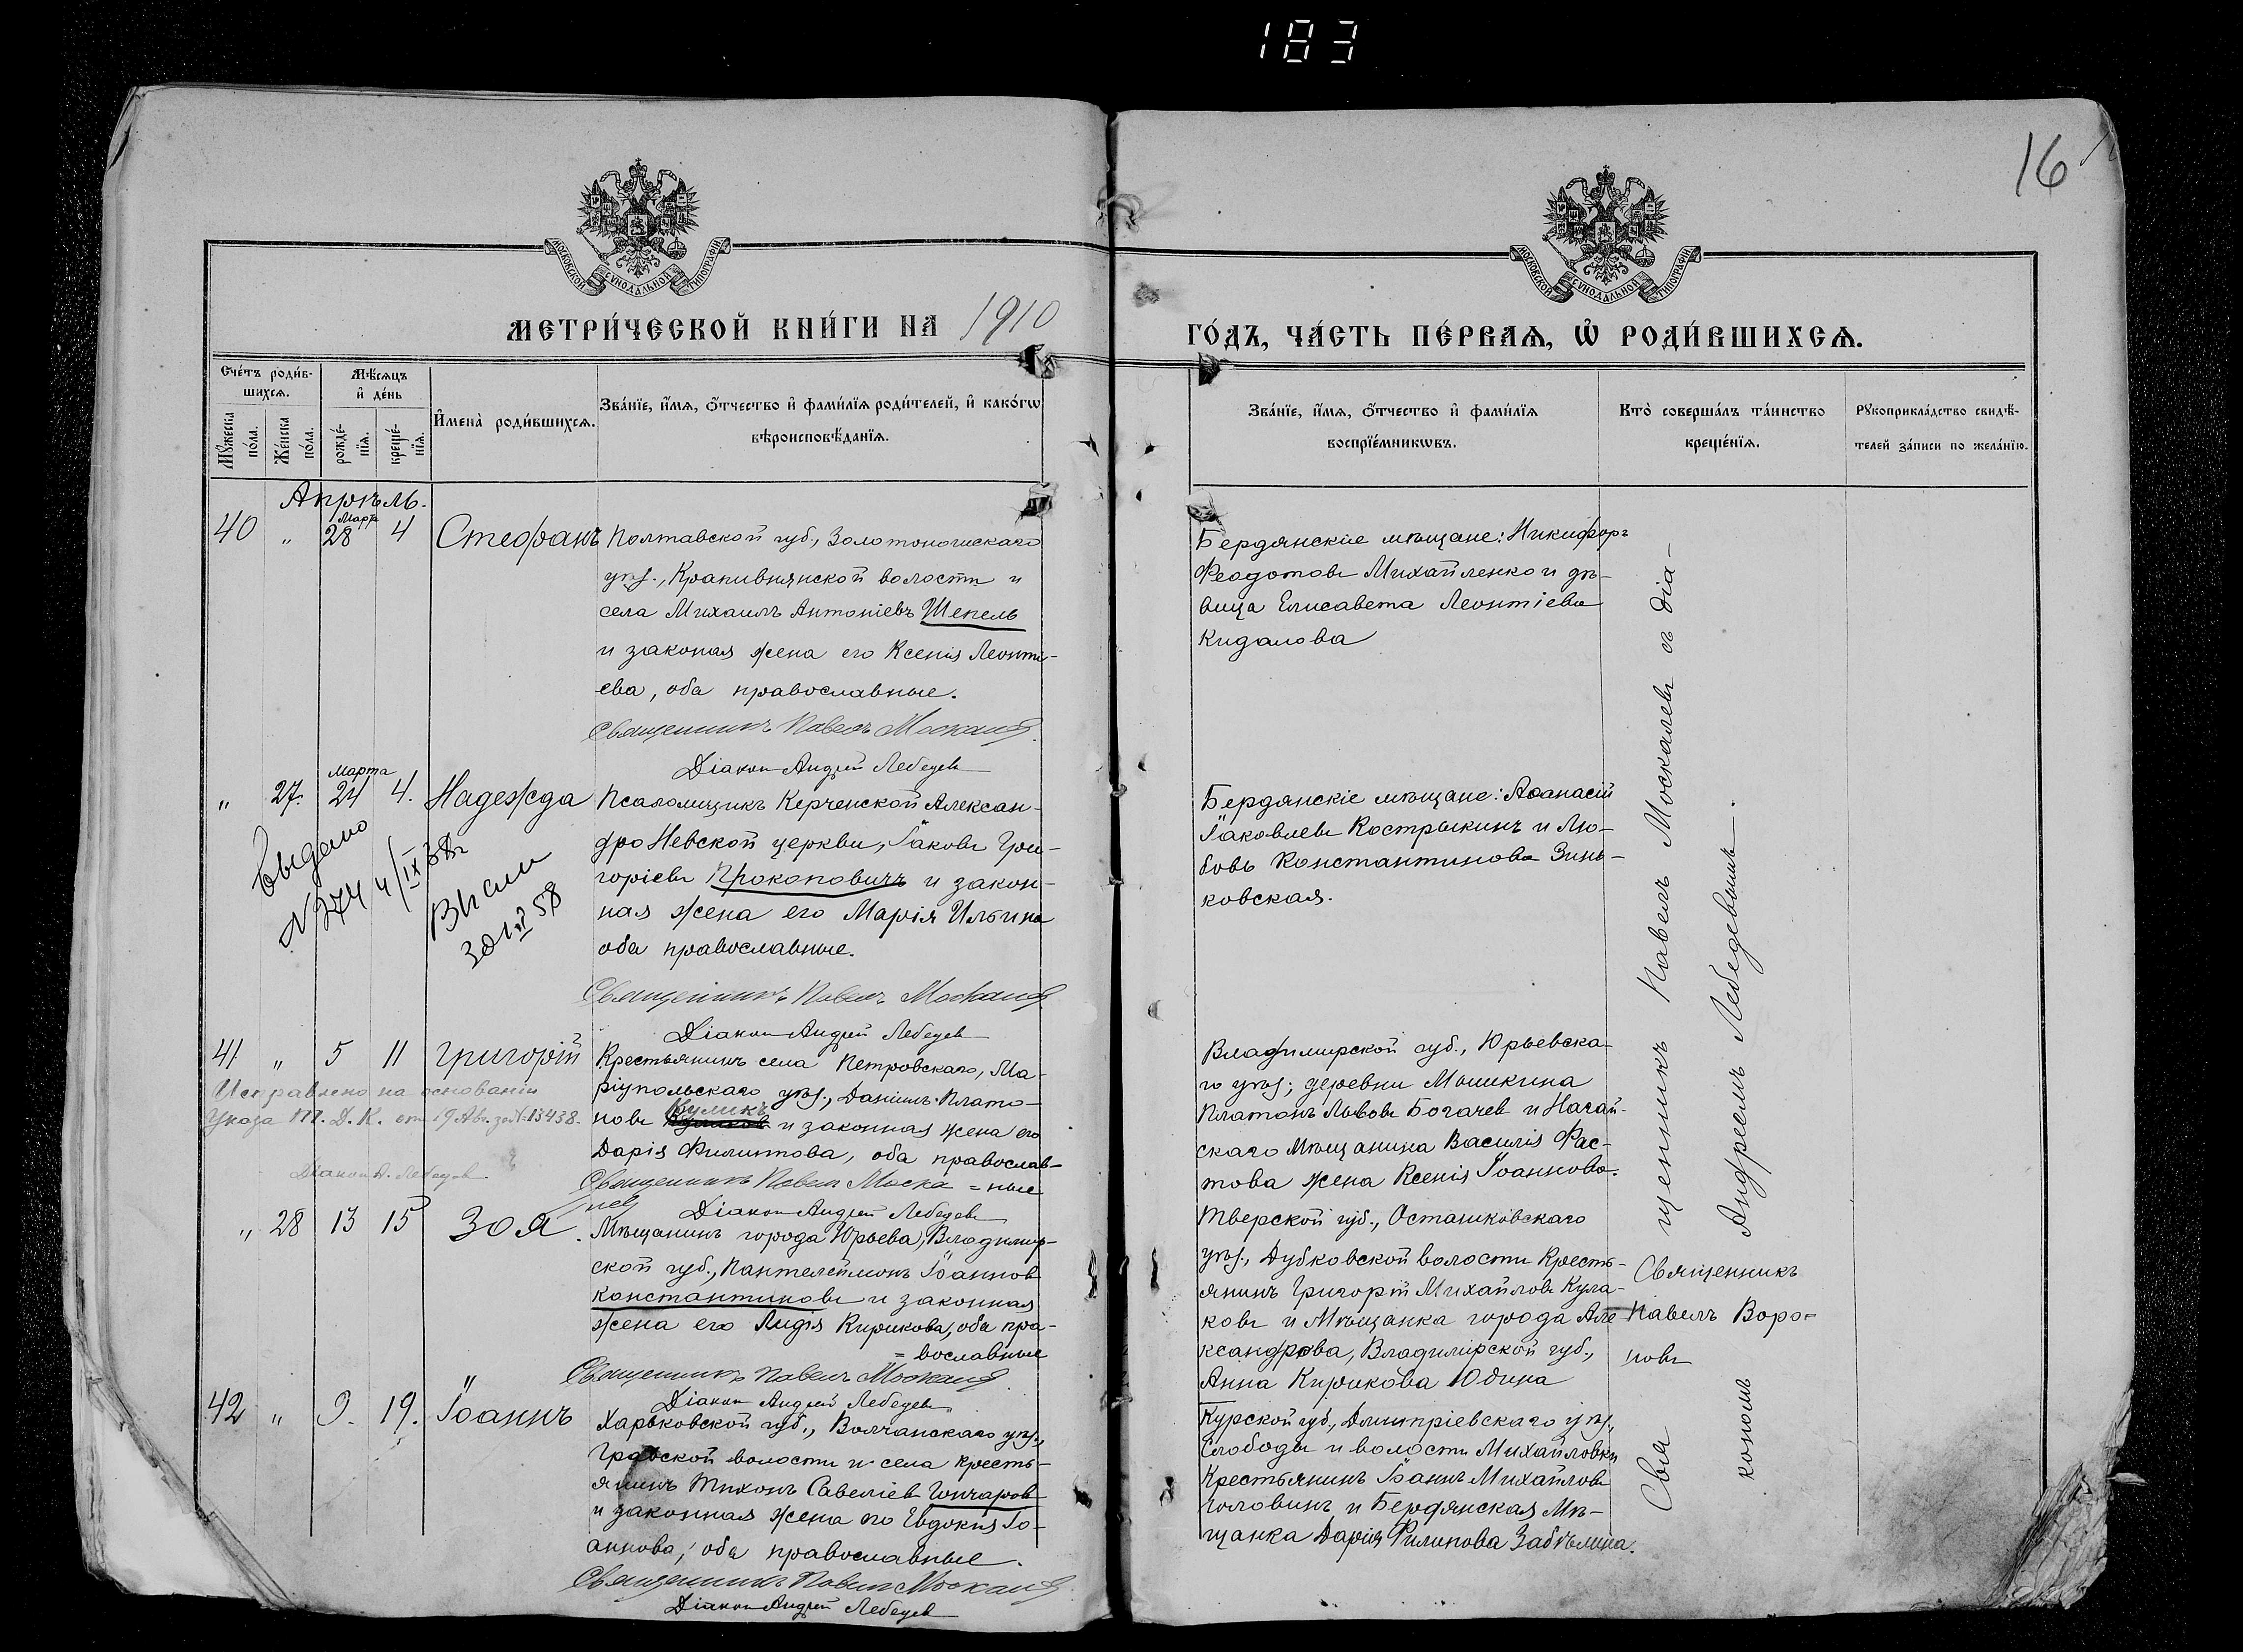 183
16
МОСКОВСКОЙ СѴНОДАЛЬНОЙ ТИПОГРАФІИ
МОСКОВСКОЙ СѴНОДАЛЬНОЙ ТИПОГРАФІИ
МЕТРИ́ЧЕСКОЙ КНИ́ГИ НА 1910
ГО́ДЪ, ЧА́СТЬ ПЕ́РВАѦ, Ѡ҆ РОДИ́ВШИХСѦ.
Сче́тъ роди́в-
шихсѧ.
Мѣ́сѧцъ
и҆ де́нь
Мꙋ́жеска
по́ла.
Же́нска
по́ла.
рожде́-
нїѧ.
креще́-
нїѧ.
И҆мена̀ роди́вшихсѧ.
Зва́нїе, и҆́мѧ, ѻ҆́тчество и҆ фами́лїѧ роди́телей, и҆ како́гѡ
вѣроисповѣ́данїѧ.
Зва́нїе, и҆́мѧ, ѻ҆́тчество и҆ фами́лїѧ
воспрїе́мникѡвъ.
Кто̀ соверша́лъ та́инство
креще́нїѧ.
Рꙋкоприкла́дство свидѣ́-
телей за́писи по жела́нїю.
Апрѣль.
40 " Марта 28 4 Стефанъ
Полтавской губ., Золотоношскаго
уѣз., Крапивнянской волости и
села Михаилъ Антоніевъ Шепель
и законая жена его Ксенія Леонті-
ева, оба православные.
Священникъ Павелъ Москалев
Діаконъ Андрей Лебедевъ
Бердянскіе мѣщане: Никифоръ
Феодотовъ Михайленко и дѣ-
вица Елисавета Леонтіева
Кидалова
" 27. Марта 24 4. Надежда
Выдано
N 274 4/IX 38г
ВПсли
30 VI 58
Псаломщикъ Керченской Алексан-
дро Невской церкви, Іаковъ Гри-
горіевъ Прокоповичъ и закон-
ная жена его Марія Ильина
оба православные.
Священникъ Павелъ Москалев
Діаконъ Андрей Лебедевъ
Бердянскіе мѣщане: Аѳанасій
Іаковлевъ Кострыкинъ и Лю-
бовь Константинова Зинь-
ковская.
41 " 5 11 Григорій
Исправлено на основаніи
Указа Т. Д. К. от 19 Авг. за № 13438.
Діакон А. Лебедев
Крестьянинъ села Петровскаго, Ма-
ріупольскаго уѣз., Даніилъ Плато-
новъ Куликъ и законная жена его
Дарія Филиппова, оба православ-
=ные
Священникъ Павелъ Моска
лев
Діаконъ Андрей Лебедевъ
Владимирской губ., Юрьевска-
го уѣз; деревни Мышкина
Платонъ Львовъ Богачев и Нагай-
скаго Мѣщанина Василія Фас-
това жена Ксенія Іоаннова.
" 28 13 15 Зоя.
Мѣщанинъ города Юрьева, Владимир-
ской губ., Пантелеймонъ Іоаннов
Константиновъ и законная
жена его Лидія Кирикова, оба пра-
=вославные
Священникъ Павелъ Москалев
Діакон Андрей Лебедевъ
Тверской губ., Осташковскаго
уѣз., Дубковской волости Кресть-
янинъ Григорій Михайловъ Кула-
ковъ и Мѣщанка города Але-
ксандрова, Владимірской губ.,
Анна Кирикова Юдина
Священникъ
Павелъ Воро-
новъ
42 " 9. 19. Іоаннъ
Харьковской губ., Волчанскаго уѣз.,
Графской волости и села Кресть-
янинъ Тихонъ Савеліев Гончаров
и законная жена его Евдокія Іо-
аннова, оба православные.
Священникъ Павелъ Москалев
Діаконъ Андрей Лебедевъ
Курской губ., Дмитріевскаго уѣз.,
Слободы и волости Михайловки
Крестьянинъ Іоаннъ Михайловъ
Головинъ и Бердянская Мѣ-
щанка Дарія Филипова Забѣлина.
Священникъ Павелъ Москалевъ съ діа-
кономъ Андреемъ Лебедевымъ.